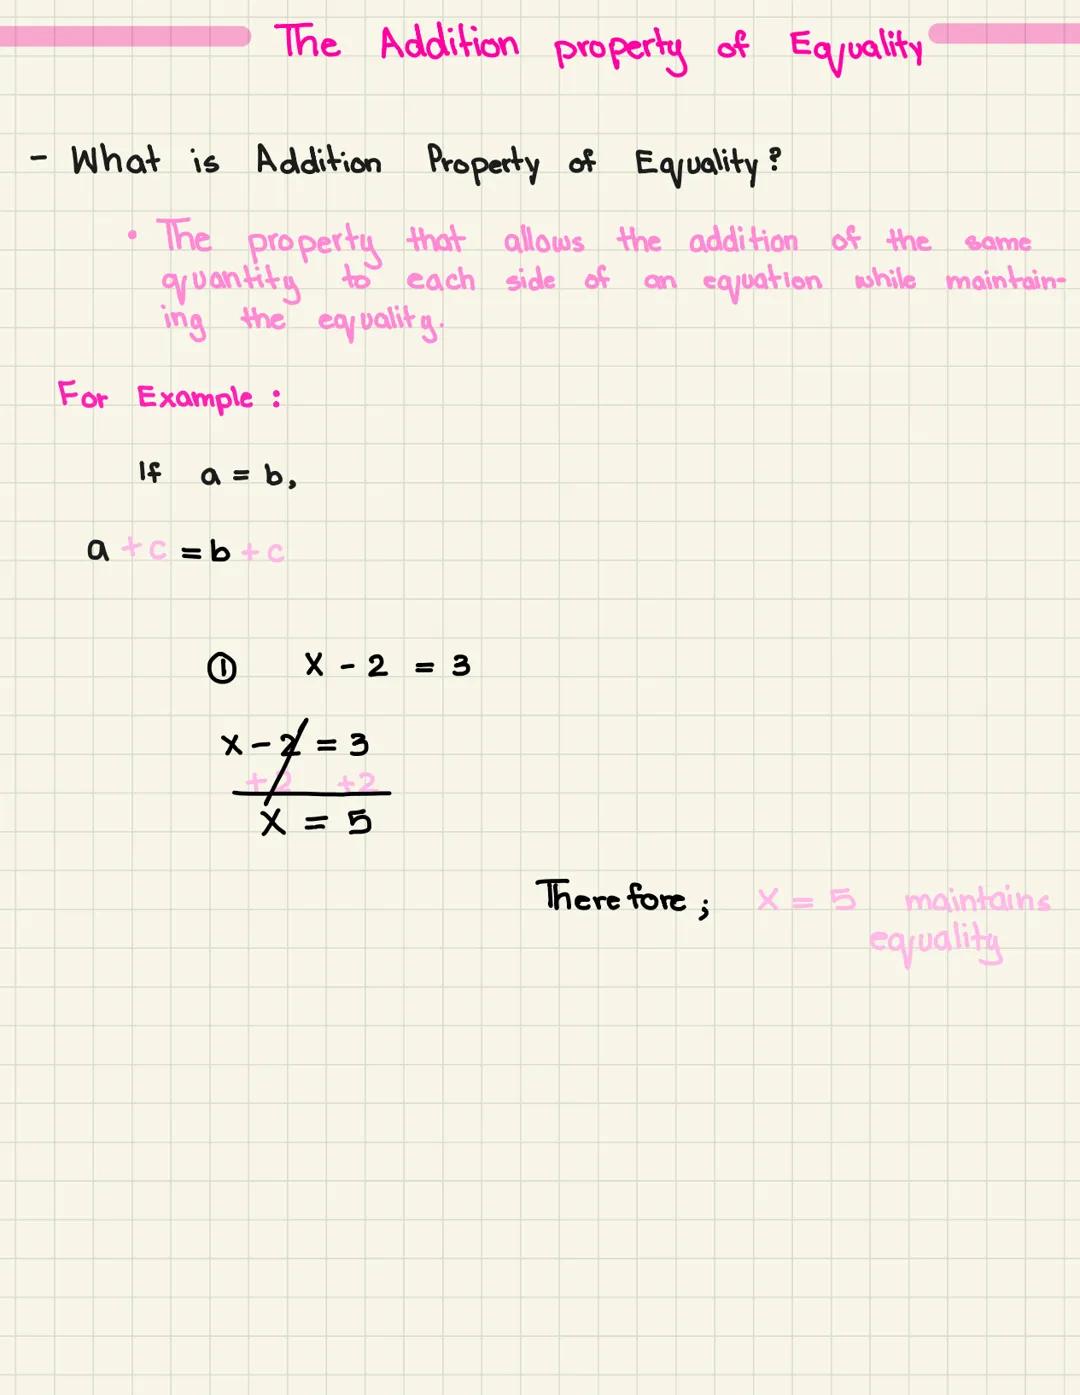 The Addition property of Equality
- What is Addition Property of Equality?
• The property that allows the addition of the same
quantity to each side of an equation while maintain-
ing the equality.
For Example :
If a = b,
a + c = b + c
① x - 2 = 3
x - 2 = 3
+2 +2
x = 5
Therefore ; x = 5 maintains
equality